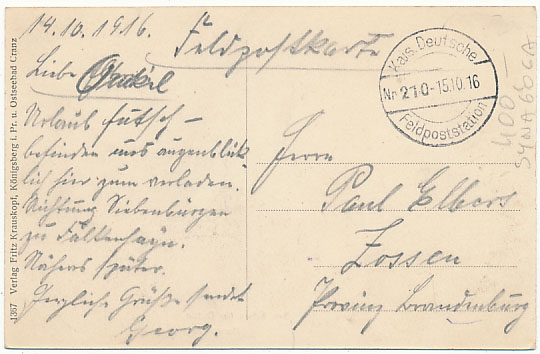 14.10.1916.
Feldpostkarte
Liebe Onkel
Urlaub futsch —
befinden uns augenblick
lich hier zum verladen.
Richtung Siebenbürgen
zu Falkenhayn.
Nähers später.
Herzliche Grüße sendet
Georg.
Kais. Deutsche
Nr 210 - 15.10.16
Feldpoststation
Herrn
Paul Elbers
Zossen
Provinz Brandenburg
400,-
SYNAGOGA
1367 Verlag Fritz Krauskopf, Königsberg i. Pr. u. Ostseebad Cranz